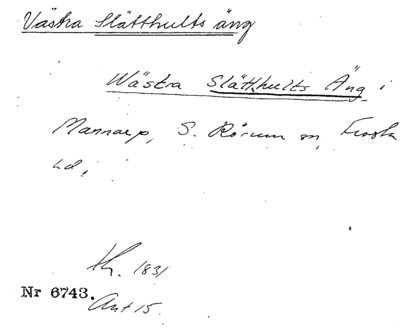 Västra Slätthults äng
Wästra Slätthults Äng i
Mannarp, S. Rörum sn, Frosta
hd.
Ant 15.
1831
Nr 6743.